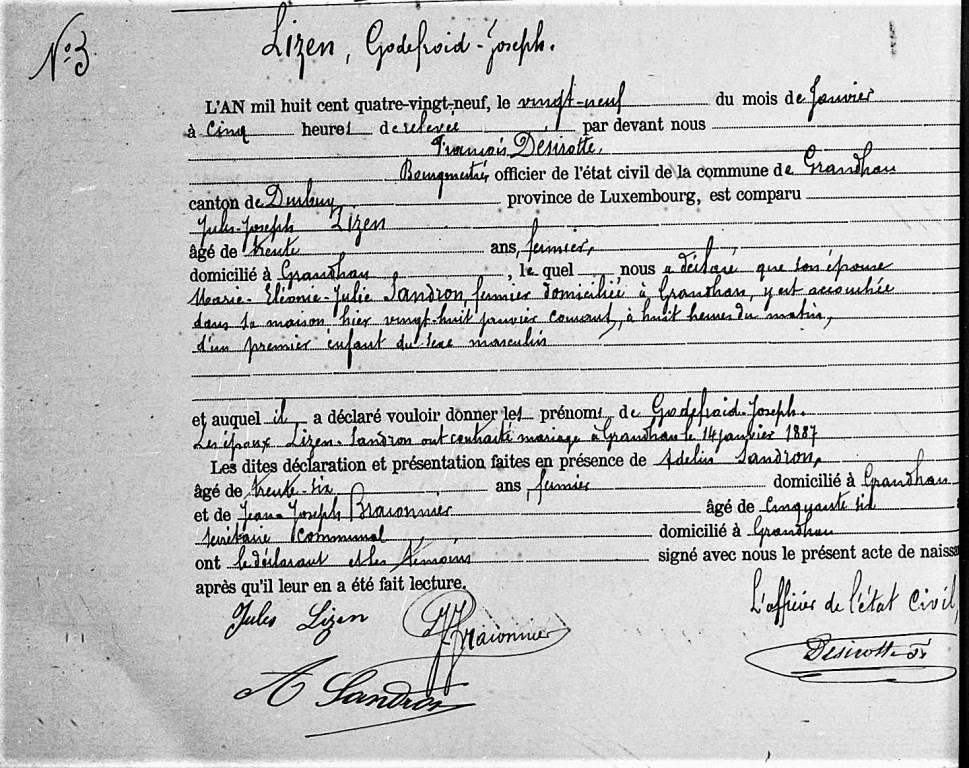 N° 3
Lizen, Godefroid-Joseph.
L'AN mil huit cent quatre-vingt-neuf, le vingt-neuf du mois de Janvier
à cinq heures de relevée par devant nous
François Désirotte,
Bourgmestre officier de l'état civil de la commune de Grandhan
canton de Durbuy province de Luxembourg, est comparu
Jules-Joseph Lizen
âgé de trente ans, fermier,
domicilié à Grandhan, le quel nous a déclaré que son épouse
Marie-Eléonie-Julie Sandron, fermier domiciliée à Grandhan, y est accouchée
dans sa maison hier vingt-huit janvier courant, à huit heures du matin,
d'un premier enfant du sexe masculin
et auquel il a déclaré vouloir donner les prénoms de Godefroid-Joseph.
Les époux Lizen-Sandron ont contracté mariage à Grandhan le 14 janvier 1887
Les dites déclaration et présentation faites en présence de Adelin Sandron,
âgé de trente-six ans, fermier domicilié à Grandhan
et de Jean-Joseph Braconnier âgé de cinquante six
secrétaire communal domicilié à Grandhan
ont le déclarant et les témoins signé avec nous le présent acte de naissa
après qu'il leur en a été fait lecture.
Jules Lizen
JJ Braconnier
L'officier de l'état civil,
A Sandron
Désirotte